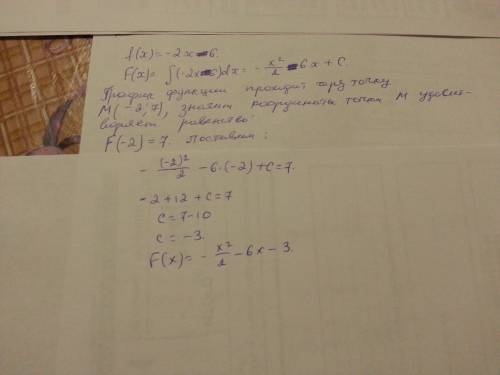 f(x)= -2x-6.
F(x)= ∫(-2x-6)dx = - x²/2 - 6x + C.
График функции проходит через точку
M(-2; 7), значит координаты точки М удовлет-
воряет равенство:
F(-2) = 7. Поставлем:
- (-2)²/2 - 6·(-2) + C = 7.
-2+12+C=7
C=7-10
C = -3.
F(x)= - x²/2 - 6x - 3.